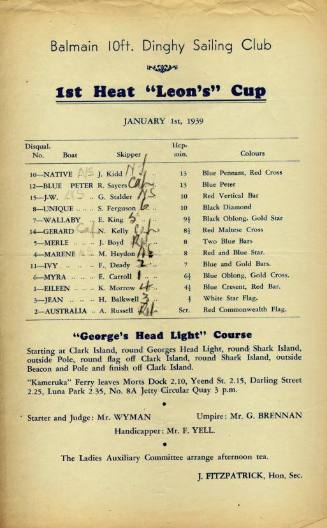 Balmain 10ft. Dinghy Sailing Club
1st Heat "Leon's" Cup
JANUARY 1st, 1939
Disqual. Hcp-
No. Boat Skipper min. Colours
10—NATIVE N/S J. Kidd 13 Blue Pennant, Red Cross
12—BLUE PETER R. Sayers Cap 13 Blue Peter
15—J.W. G. Stalder 10 Red Vertical Bar
8—UNIQUE S. Ferguson 6 10 Black Diamond
7—WALLABY E. King 5 9½ Black Oblong, Gold Star
14—GERARD N. Kelly Cap 8½ Red Maltese Cross
5—MERLE J. Boyd 8 Two Blue Bars
4—MARENE M. Heydon 8 Red and Blue Star.
11—IVY F. Deady 2 7 Blue and Gold Bars.
6—MYRA E. Carroll 1 6½ Blue Oblong, Gold Cross.
1—EILEEN K. Morrow 4 4½ Blue Cresent, Red Bar.
3—JEAN H. Balkwell 3 White Star Flag.
2—AUSTRALIA A. Russell Scr. Red Commonwealth Flag.
"George's Head Light" Course
Starting at Clark Island, round Georges Head Light, round Shark Island,
outside Pole, round flag off Clark Island, round Shark Island, outside
Beacon and Pole and finish off Clark Island.
"Kameruka" Ferry leaves Morts Dock 2.10, Yeend St. 2.15, Darling Street
2.25, Luna Park 2.35, No. 8A Jetty Circular Quay 3 p.m.
Starter and Judge: Mr. WYMAN Umpire: Mr. G. BRENNAN
Handicapper: Mr. F. YELL.
The Ladies Auxiliary Committee arrange afternoon tea.
J. FITZPATRICK, Hon. Sec.